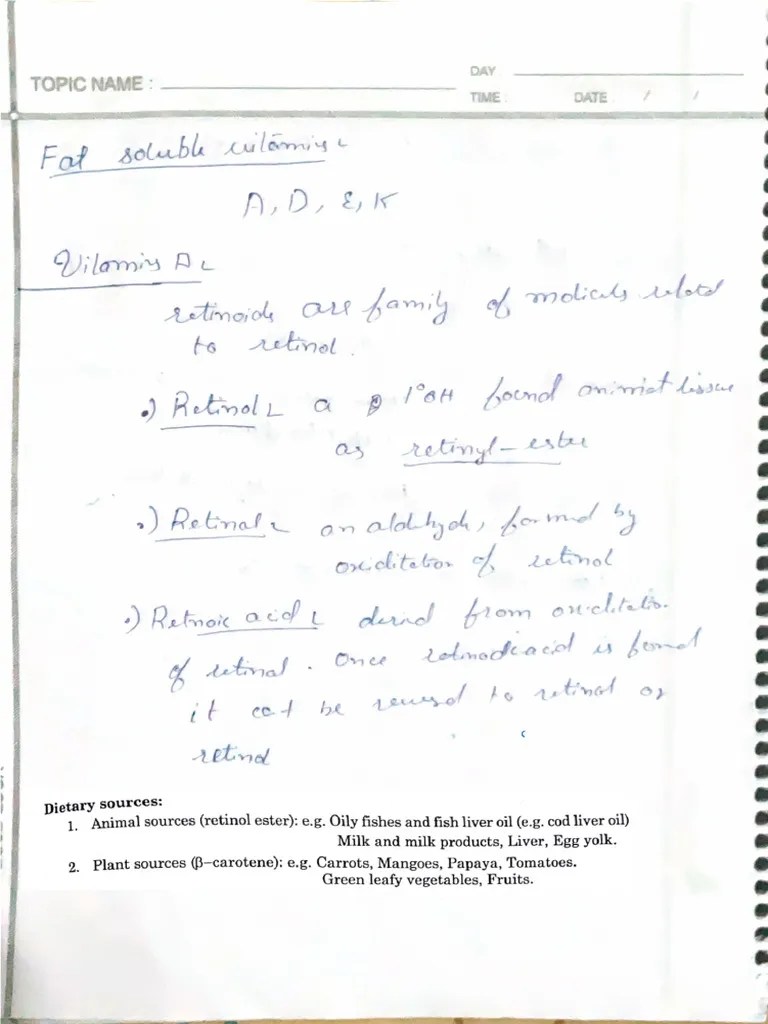 TOPIC NAME :
DAY
TIME : DATE / /
Fat soluble vitamins
A, D, E, K
Vitamins A
retinoids are family of molicules related
to retinol.
•) Retinol a 1° OH found animal tissue
as retinyl-ester
•) Retinal an aldehyde, formed by
oxiditation of retinol
•) Retnoic acid derived from oxiditatio.
of retinal. Once retinoic acid is formed
it can't be reversed to retinal or
retinol
Dietary sources:
1. Animal sources (retinol ester): e.g. Oily fishes and fish liver oil (e.g. cod liver oil)
Milk and milk products, Liver, Egg yolk.
2. Plant sources (β–carotene): e.g. Carrots, Mangoes, Papaya, Tomatoes.
Green leafy vegetables, Fruits.